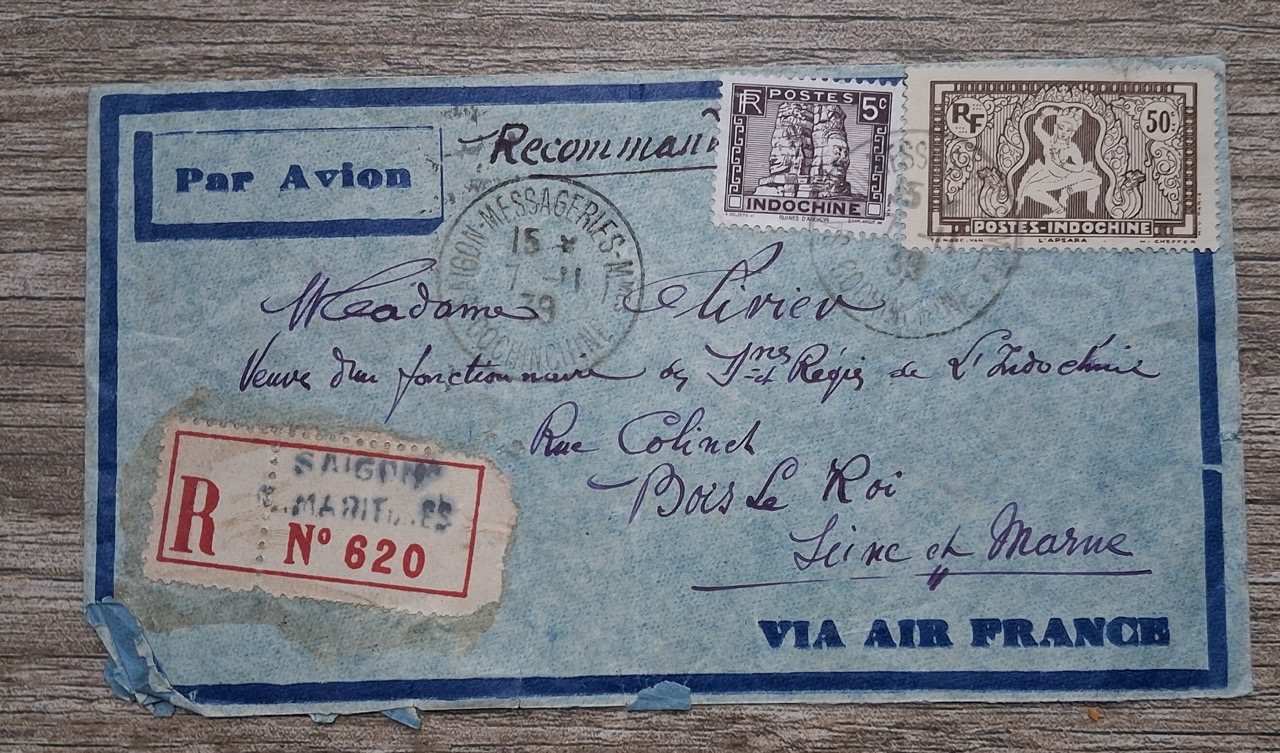 Par Avion
Recommand
RF POSTES 5c
INDOCHINE
RUINES D'ANGKOR
RF 50c
POSTES-INDOCHINE
TO NGOC-VAN L'APSARA H. CHEFFER
SAIGON-MESSAGERIES-Mmes
15 *
7 -11
39
COCHINCHINE
39
Madame Olivier
Veuve d'un fonctionnaire des Dnes et Régies de L'Indochine
Rue Colinet
Bois Le Roi
Seine et Marne
SAIGON
MARITIMES
R N° 620
VIA AIR FRANCE